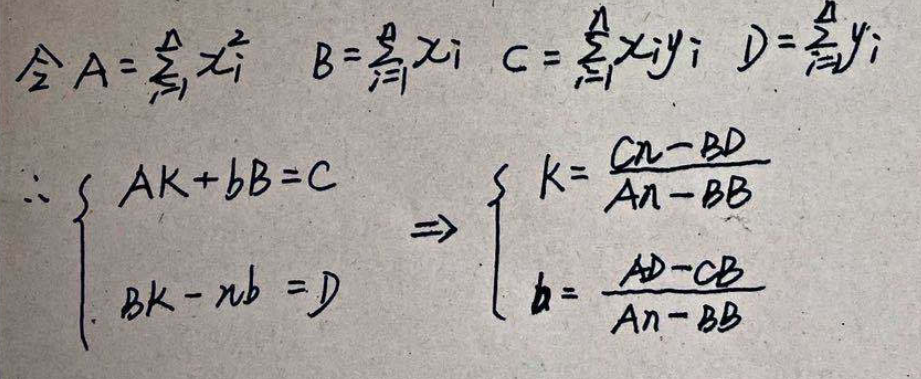 令 A = \sum_{i=1}^{n} x_i^2  B = \sum_{i=1}^{n} x_i  C = \sum_{i=1}^{n} x_i y_i  D = \sum_{i=1}^{n} y_i
∴ { AK + bB = C ⇒ { K = \frac{Cn - BD}{An - BB}
BK - nb = D  b = \frac{AD - CB}{An - BB}